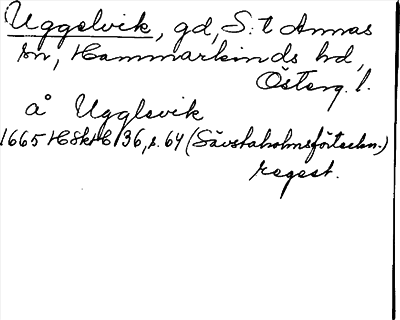 Uggelvik, gd, S:t Annas
sn, Hammarkinds hd,
Österg. l.
å Ugglevik
1665 HSkH 36, s. 64 (Sävstaholmsförteckn.)
regest.